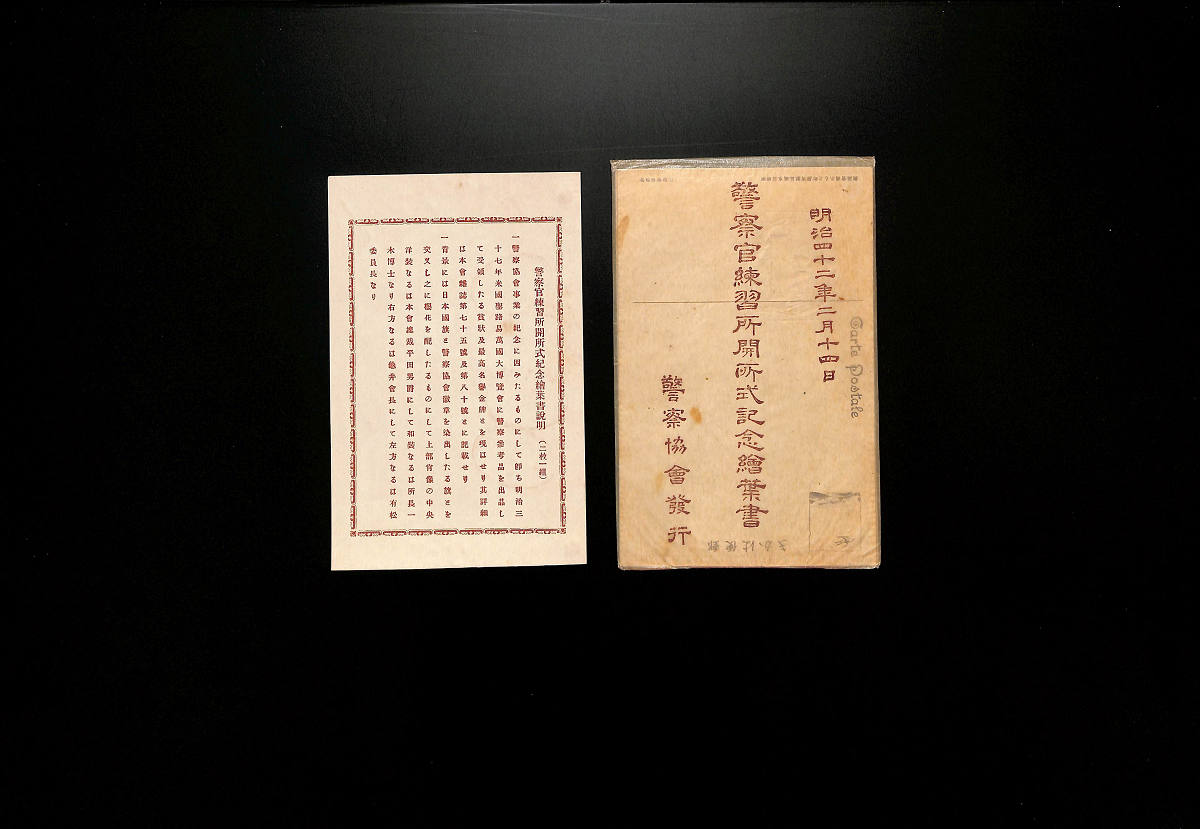 明治四十二年二月十四日
警察官練習所開所式記念繪葉書
警察協會發行
Carte Postale
きかは便郵
警察官練習所開所式紀念繪葉書說明（二枚一組）
一警察協會事業の紀念に因みたるものにして卽ち明治三
十七年米國聖路易萬國大博覽會に警察參考品を出品し
て受領したる賞狀及最高名譽金牌とを現はせり其詳細
は本會雜誌第七十五號及第八十號とに記載せり
一背景には日本國旗と警察協會徽章を染出したる旗とを
交叉し之に櫻花を配したるものにして上部肖像の中央
洋裝なるは本會總裁平田男爵にして和裝なるは所長一
木博士なり右方なるは龜井會長にして左方なるは有松
委員長なり